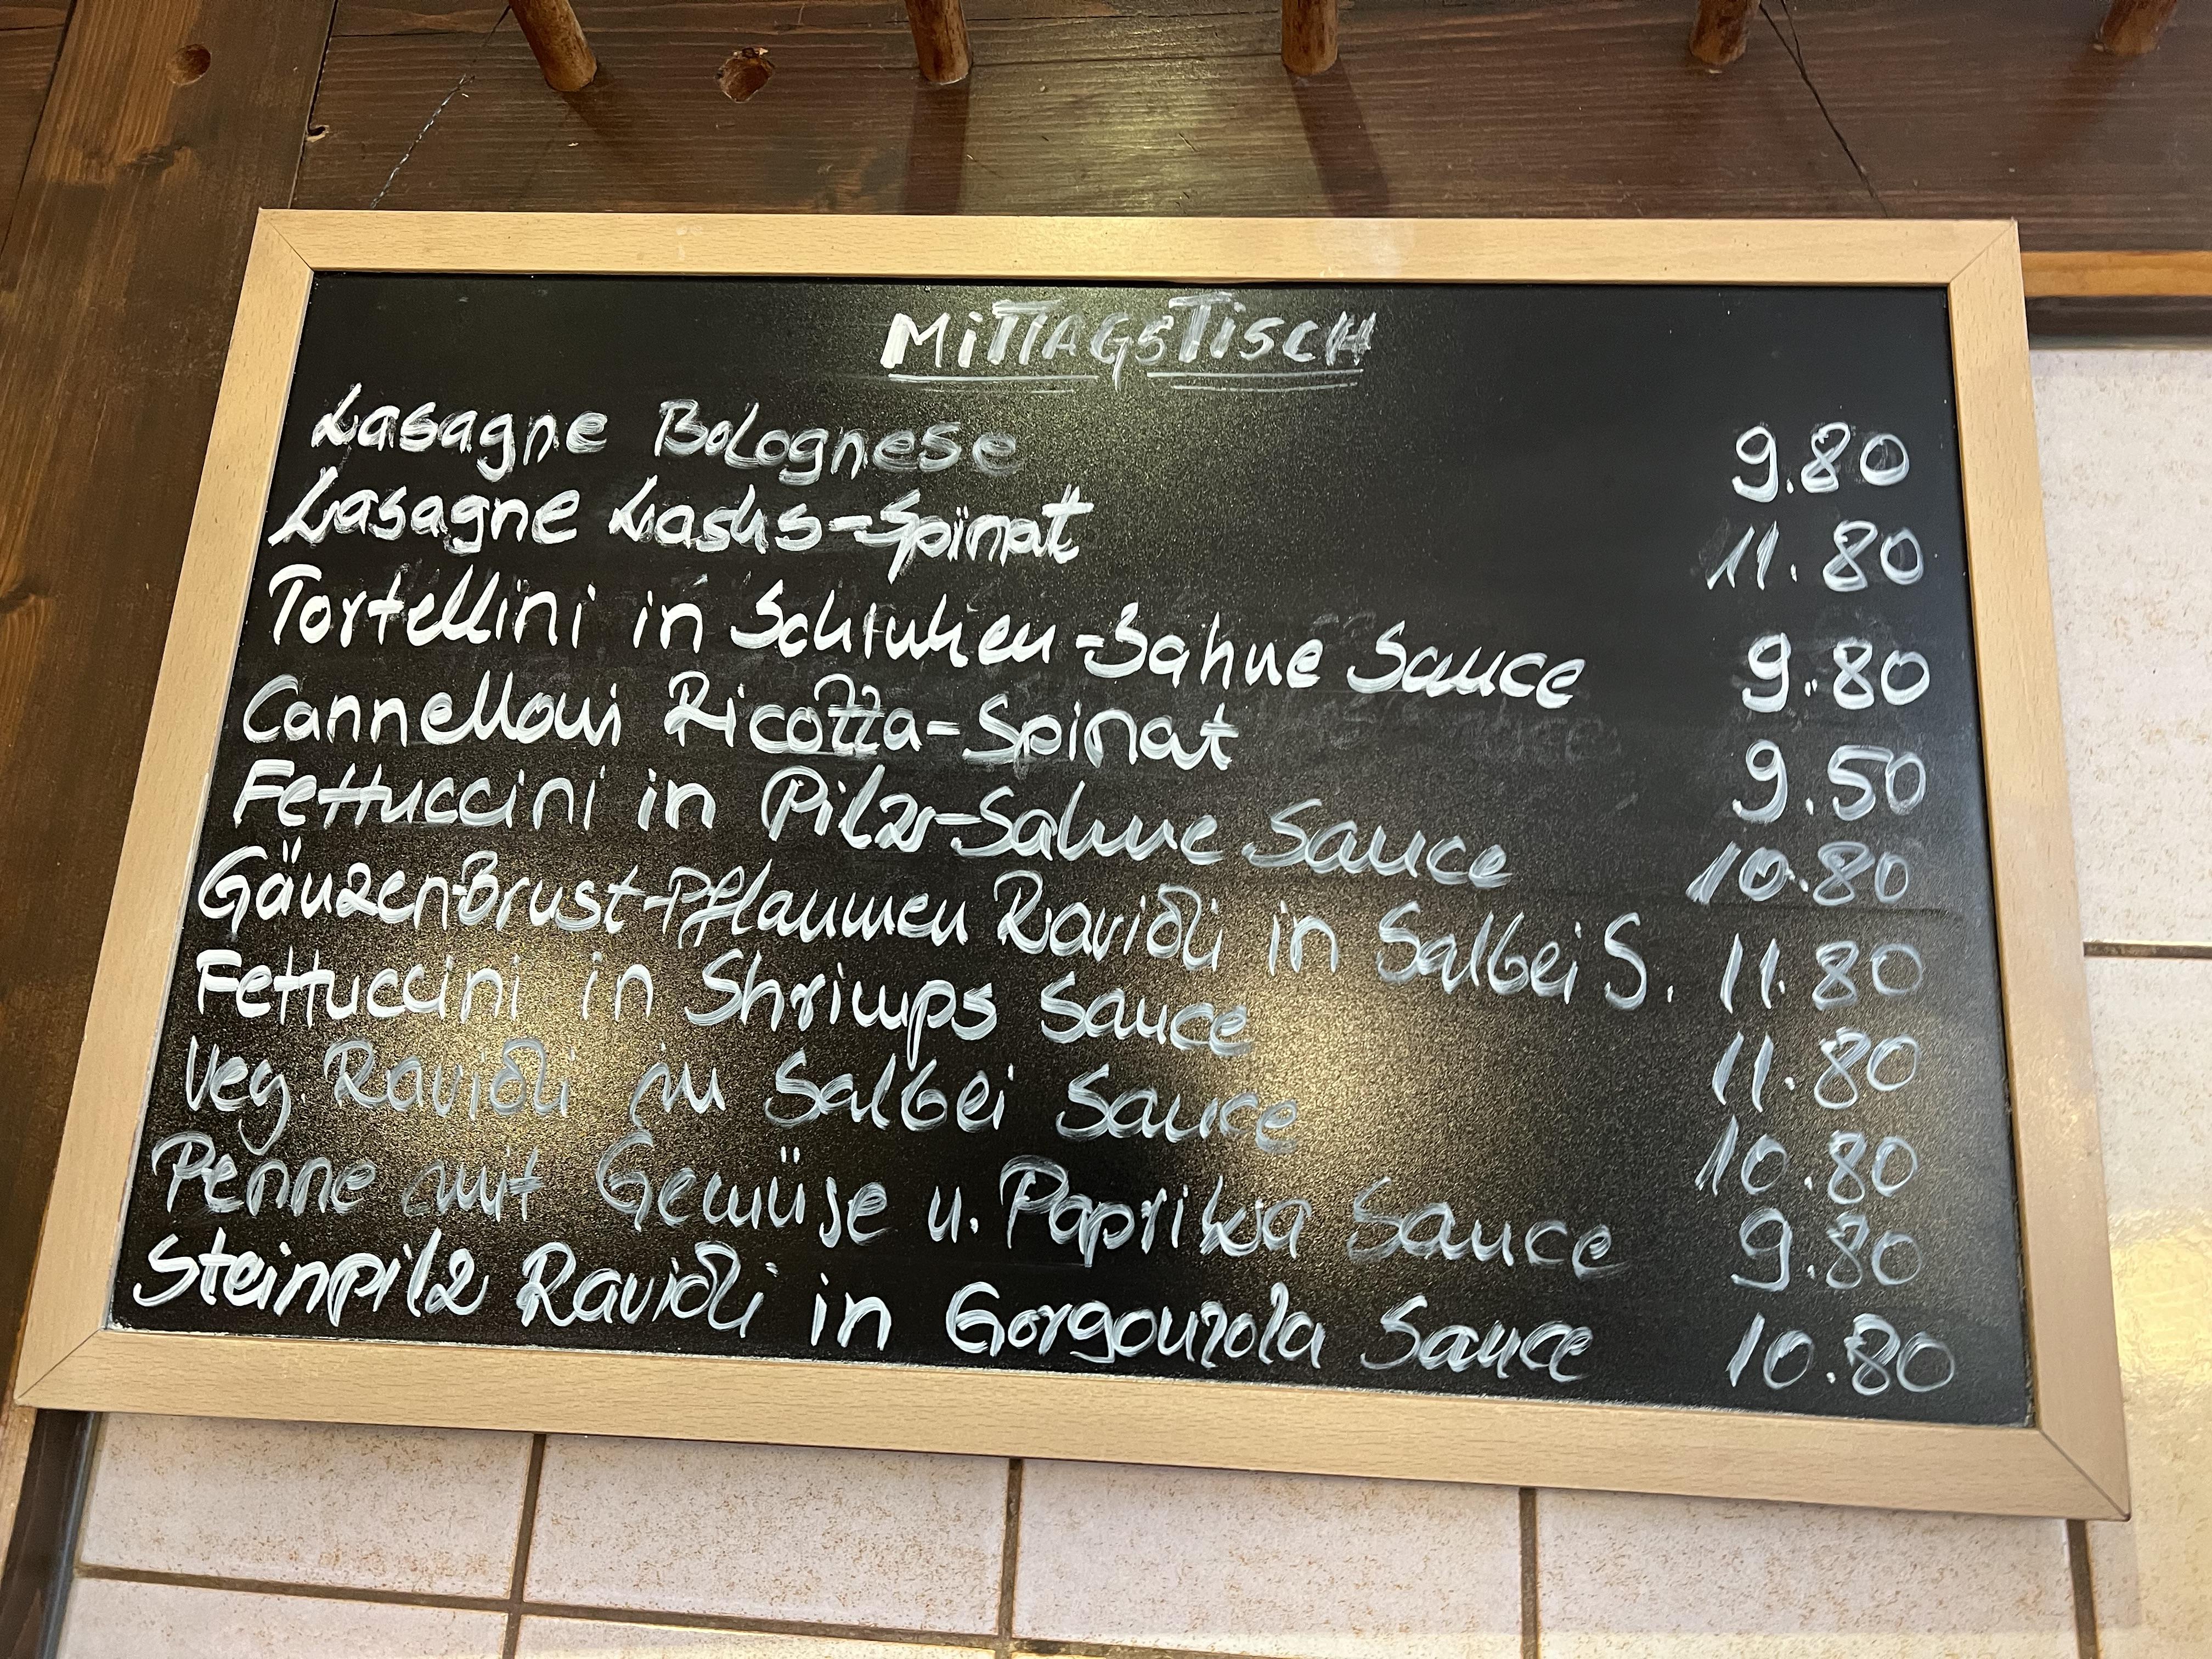 MITTAGSTISCH
Lasagne Bolognese 9.80
Lasagne Lachs-Spinat 11.80
Tortellini in Schinken-Sahne Sauce 9.80
Cannelloni Ricotta-Spinat 9.50
Fettuccini in Pilz-Sahne Sauce 10.80
Gänzen-Brust-Pflaumen Ravioli in Salbei S. 11.80
Fettuccini in Shrimps Sauce 11.80
Veg. Ravioli in Salbei Sauce 10.80
Penne mit Gemüse u. Paprika Sauce 9.80
Steinpilz Ravioli in Gorgonzola Sauce 10.80